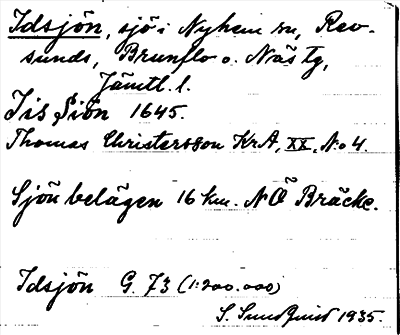 Idsjön, sjö i Nyhem sn, Rev-
sunds, Brunflo o. Näs tg,
Jämtl. l.
Jis Siön 1645.
Thomas Christersson KrA, XX, No 4.
Sjön belägen 16 km. NO Bräcke.
Idsjön G. 73 (1:200.000)
S. Sundquist 1935.